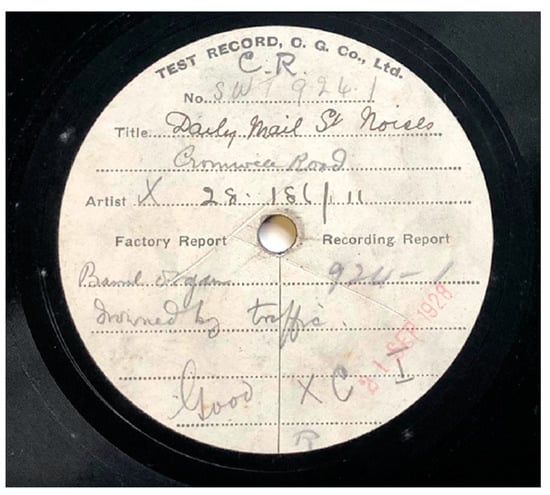 TEST RECORD, O. G. Co., Ltd.
C. R.
No. SWT 924.1
Title Daily Mail St Noises
Cromwell Road
Artist X 28.
Factory Report
Recording Report
Barrel Organ
924-1
drowned by traffic.
1 SEP 1928
Good
X C I
R